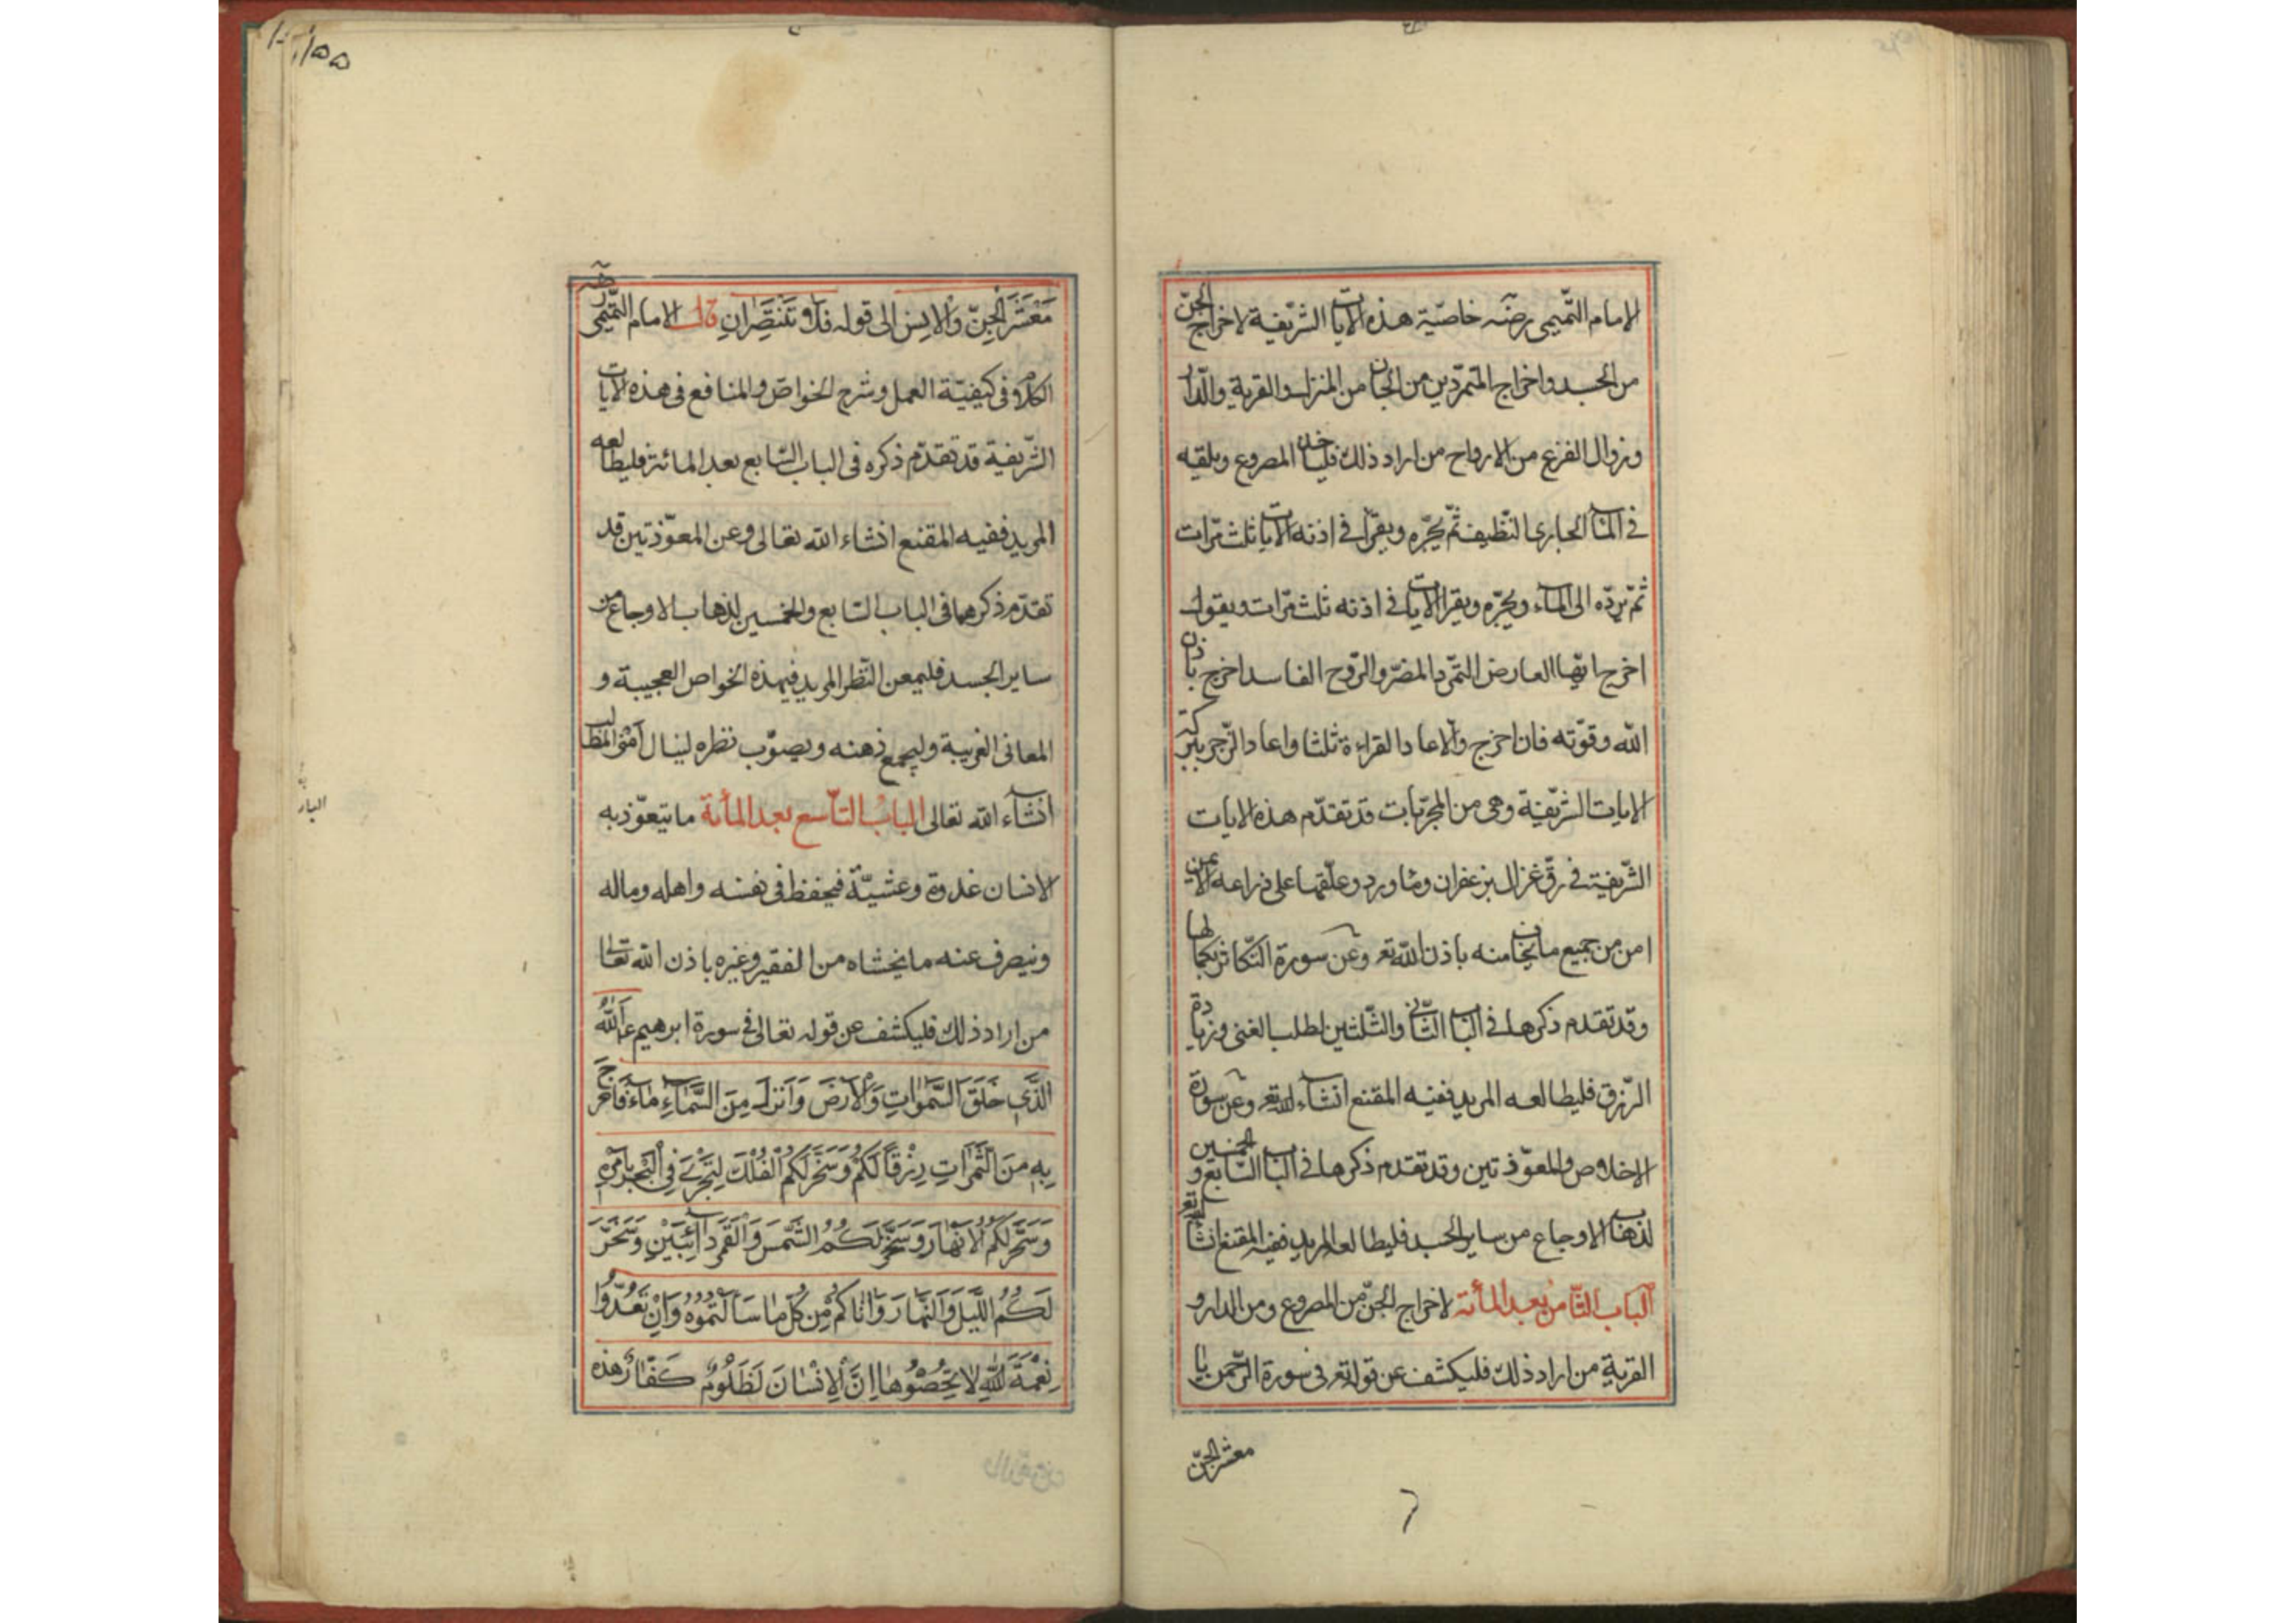 الامام التّميمى رضه خاصّيّة هذه الايات الشّريفة لاخراج الجنّ
من الجسد واخراج المتمرّدين من الجان من المنزل والقرية والدّار
وزوال الفزع من الارواح من اراد ذلك فلياخذ المصروع ويلقيه
فى الماء الجارى النّظيف ثمّ يجرّه ويقرأ فى اذنه الايات ثلث مرّات
ثمّ يردّه الى الماء ويجرّه ويقرا الايات فى اذنه ثلث مرّات ويقول
اخرج ايّها العارض التمرّد المضرّ والرّوح الفاسد اخرج باذن
الله وقوّته فان اخرج والّا عاد القراءة ثلثا واعاد الزّجر ببركة
الايات الشّريفة وهى من المجرّبات قد تقدّم هذه الايات
الشّريفة فى رقّ غزال بزعفران وماورد وعلّقها على ذراعه الايمن
امن من جميع ما يخاف منه باذن الله تعر وعن سورة التّكاثر بكمالها
وقد تقدم ذكرها فى الباب الثّانى والثّلثين لطلب الغنى وزيادة
الرّزق فليطالعه المريد ففيه المقنع انشاء الله تعر وعن سورة
الاخلاص والمعوّذتين وقد تقدم ذكرها فى الباب السّابع والخمسين
لذهاب الاوجاع من ساير الجسد فليطالعه المريد ففيه المقنع انشا الله تعر
الباب الثّامن بعد المأئة لاخراج الجنّ من المصروع ومن الدار و
القرية من اراد ذلك فليكشف عن قوله تعر فى سورة الرّحمن يا
معشر الجنّ
١٥٥
مَعْشَرَ الْجِنِّ وَالْاِنسِ الى قوله فَلَا تَنْتَصِرَانِ قال الامام التّميمى رضه
الكلام فى كيفيّة العمل وشرح الخواصّ والمنافع فى هذه الايات
الشّريفة قد تقدّم ذكره فى الباب السّابع بعد المائة فليطالعه
المريد ففيه المقنع انشاء الله تعالى وعن المعوّذتين قد
تقدّم ذكرهما فى الباب السّابع والخمسين لذهاب الاوجاع من
ساير الجسد فليمعن النّظر المريد فيهذه الخواص العجيبة و
المعانى الغريبة وليجمع ذهنه ويصوّب نظره لينال المطالب
انشاء الله تعالى الباب التّاسع بعد المأئة ما يتعوّذ به
الانسان غدوة وعشيّة فيحفظ فى نفسه واهله وماله
وينصرف عنه ما يخشاه من الفقير وغيره باذن الله تعالى
من اراد ذلك فليكشف عن قوله تعالى فى سورة ابرهيم ع اَللّٰهُ
الَّذِى خَلَقَ السَّمٰوَاتِ وَالْاَرْضَ وَاَنْزَلَ مِنَ السَّمَاءِ مَاءً فَاَخْرَجَ
بِهِ مِنَ الثَّمَرَاتِ رِزْقًا لَكُمْ وَسَخَّرَ لَكُمُ الْفُلْكَ لِتَجْرِىَ فِى الْبَحْرِ بِاَمْرِهِ
وَسَخَّرَ لَكُمُ الْاَنْهَارَ وَسَخَّرَ لَكُمُ الشَّمْسَ وَالْقَمَرَ دَائِبَيْنِ وَسَخَّرَ
لَكُمُ اللَّيْلَ وَالنَّهَارَ وَاٰتَاكُمْ مِنْ كُلِّ مَا سَاَلْتُمُوْهُ وَاِنْ تَعُدُّوا
نِعْمَةَ اللّٰهِ لَا تُحْصُوْهَا اِنَّ الْاِنْسَانَ لَظَلُومٌ كَفَّارٌ هذه